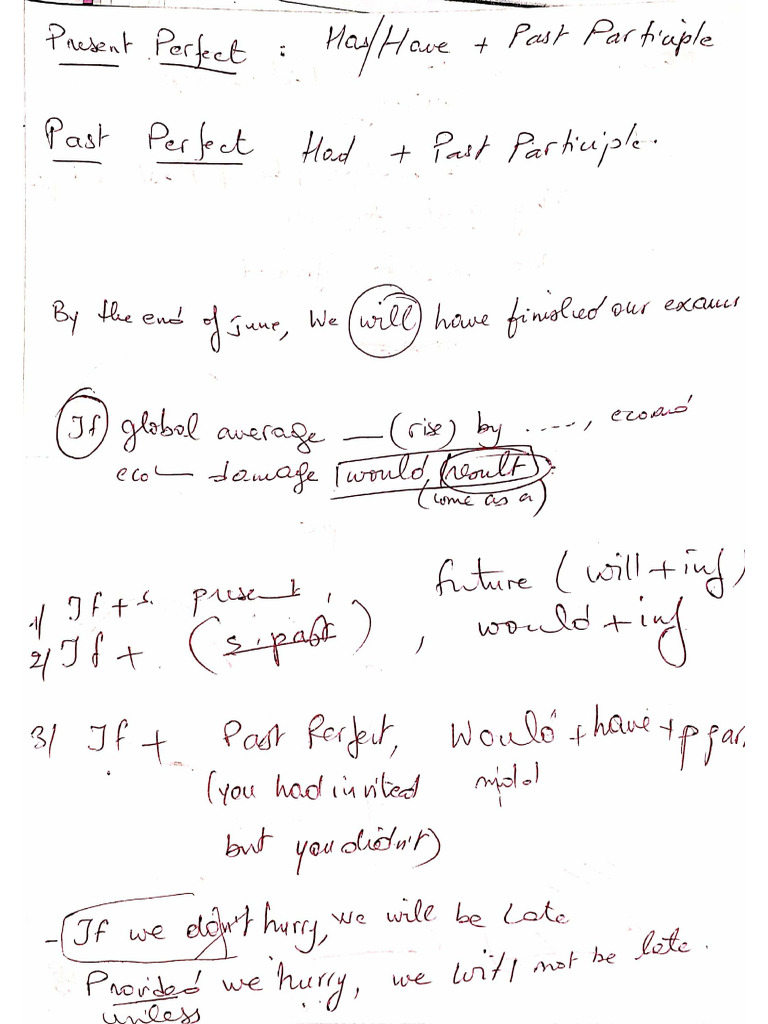 Present Perfect : Has/Have + Past Participle
Past Perfect Had + Past Participle.
By the end of june, We will have finished our exams
If global average — (rise) by ....,
eco— damage would result.
(come as a)
1/ If + s. present, future (will + inf)
2/ If + (s. past), would + inf
3/ If + Past Perfect, Would + have + p par.
(you had invited
but you didn't)
- If we don't hurry, we will be Late
Provided we hurry, we will not be late.
unless